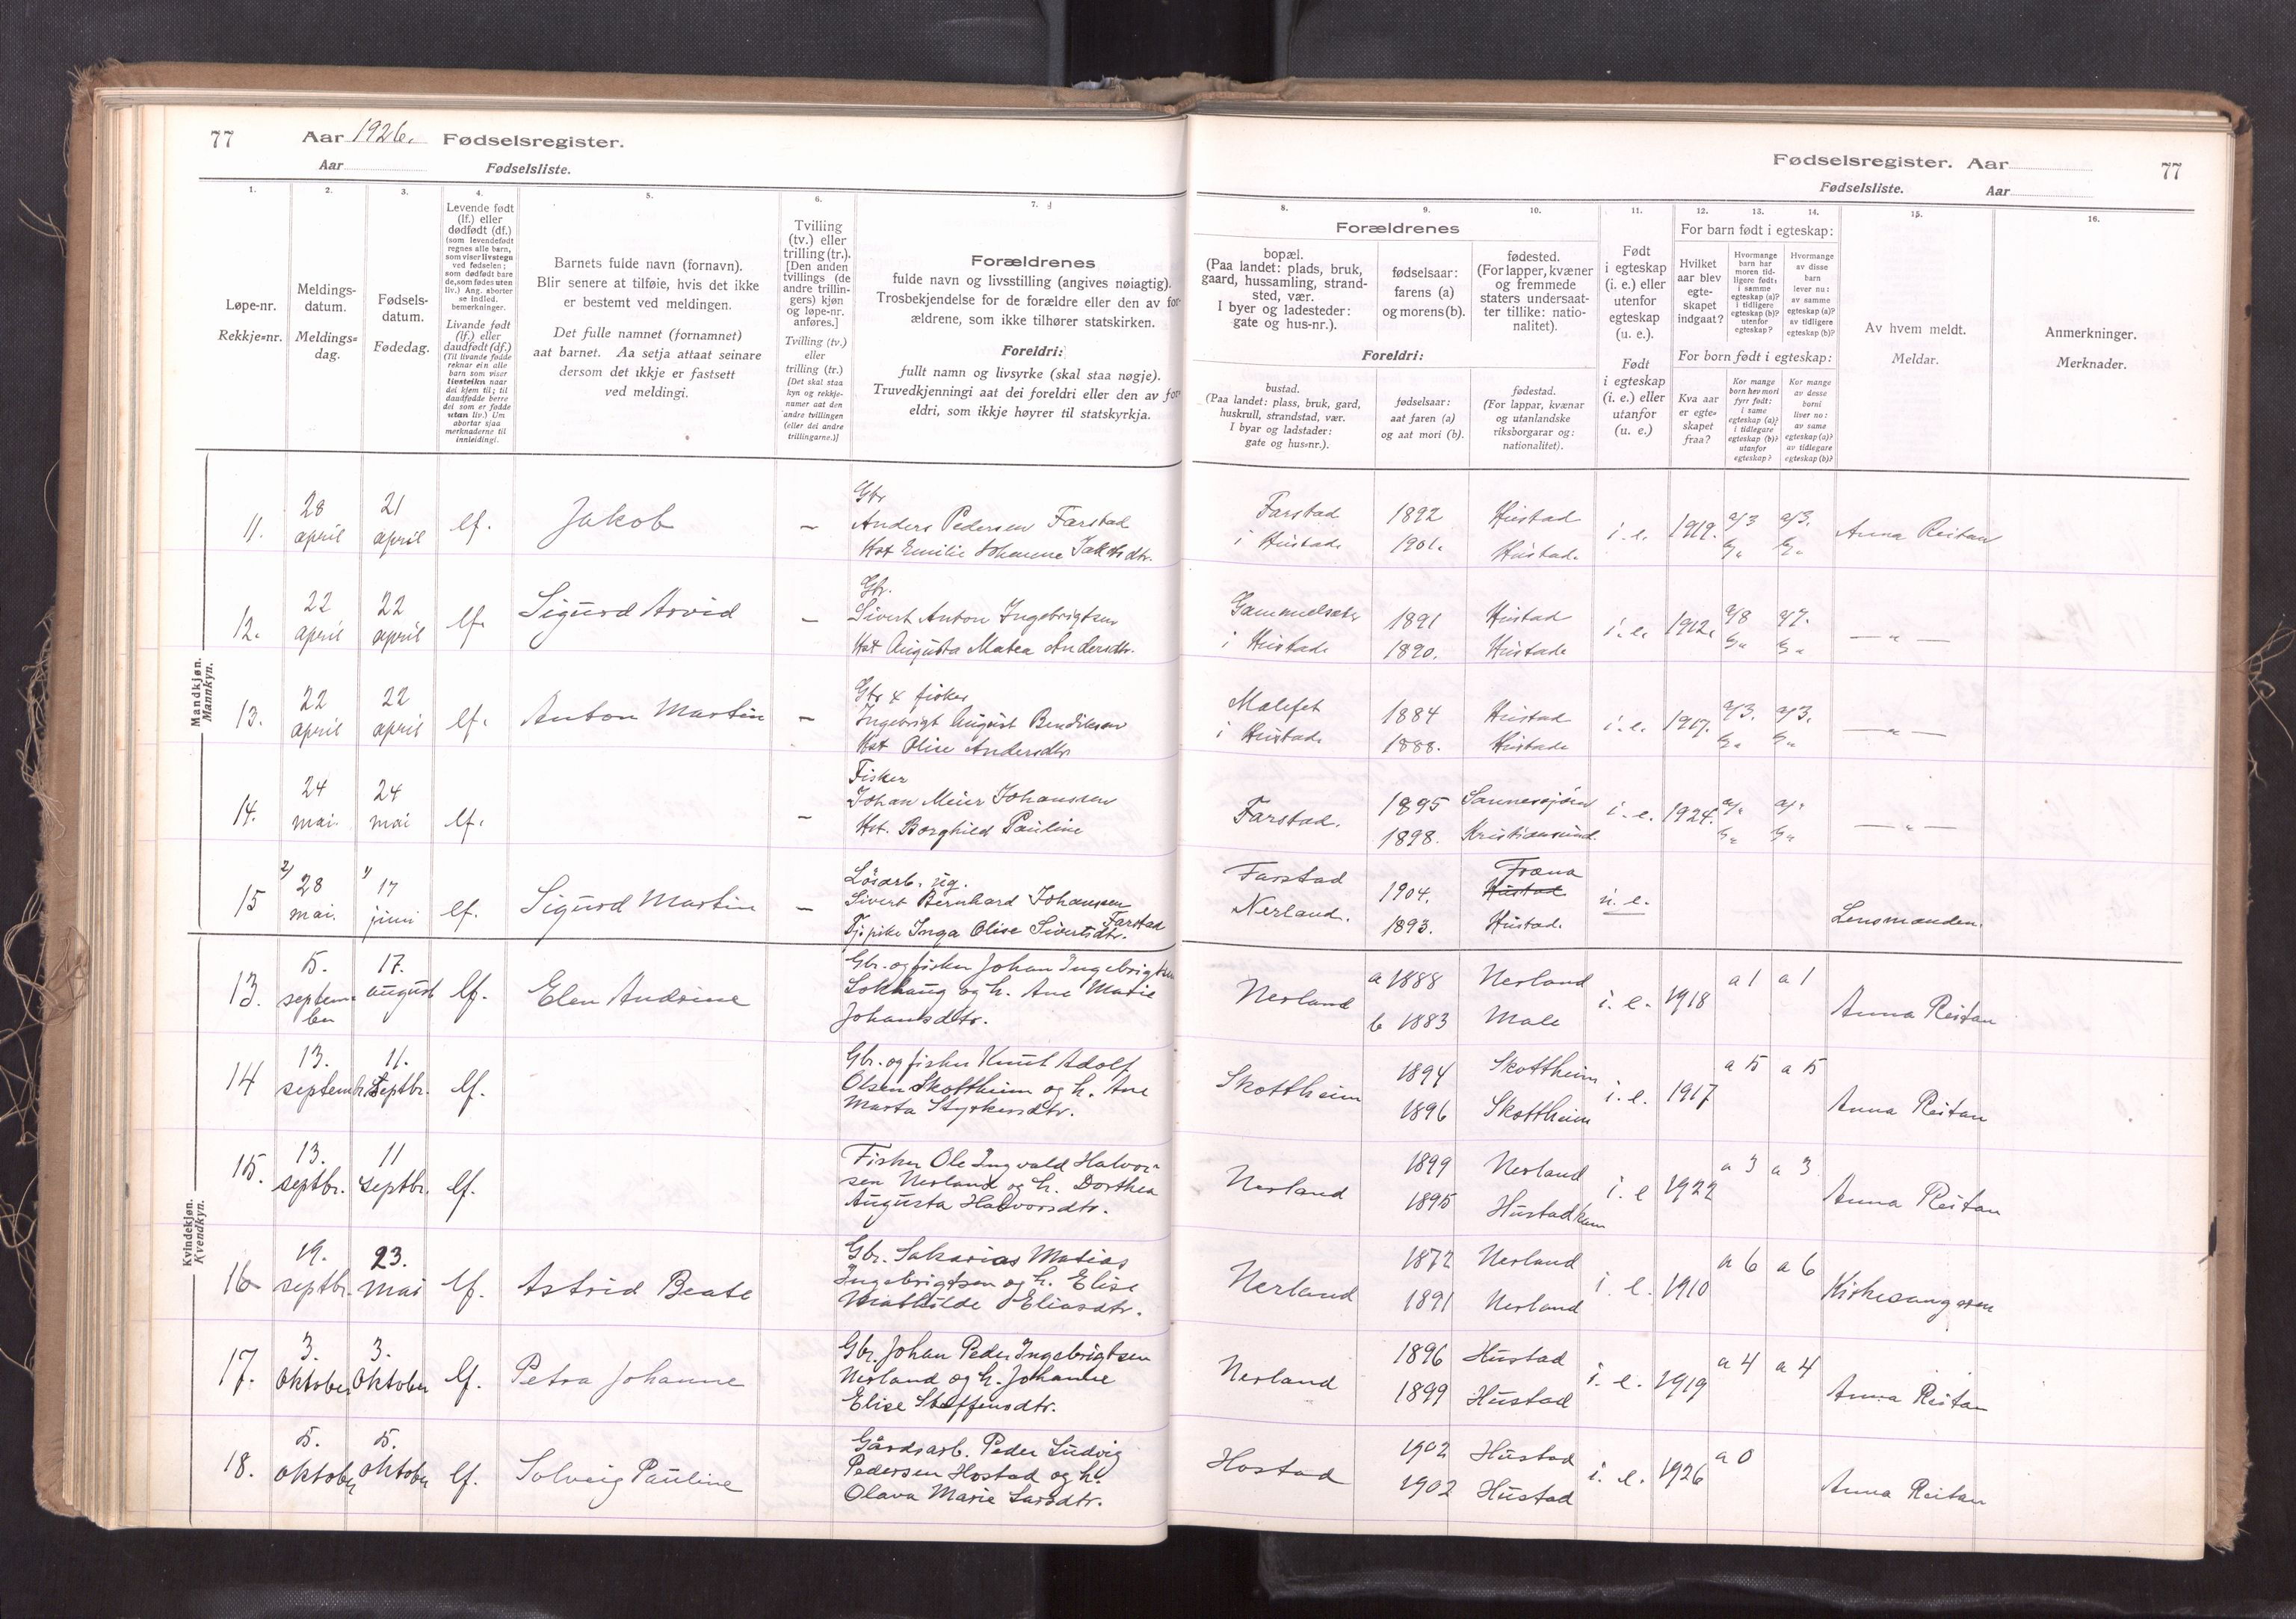 77 Aar 1926. Fødselsregister.
Aar Fødselsliste.
Fødselsregister. Aar 77
Fødselsliste. Aar
1. 2. 3. 4. 5. 6. 7.
Løpe-nr.
Rekkje=nr.
Meldings-
datum.
Meldings=
dag.
Fødsels-
datum.
Fødedag.
Levende født
(lf.) eller
dødfødt (df.)
(som levendefødt
regnes alle barn,
som viser livstegn
ved fødselen;
som dødfødt bare
de, som fødes uten
liv.) Ang. aborter
se indled.
bemerkninger.
Livande født
(lf.) eller
daudfødt (df.)
(Til livande fødde
reknar ein alle
barn som viser
livsteikn naar
dei kjem til; til
daudfødde berre
dei som er fødde
utan liv.) Um
abortar sjaa
merknaderne til
innleidingi.
Barnets fulde navn (fornavn).
Blir senere at tilføie, hvis det ikke
er bestemt ved meldingen.
Det fulle namnet (fornamnet)
aat barnet. Aa setja attaat seinare
dersom det ikkje er fastsett
ved meldingi.
Tvilling
(tv.) eller
trilling (tr.).
[Den anden
tvillings (de
andre trillin-
gers) kjøn
og løpe-nr.
anføres.]
Tvilling (tv.)
eller
trilling (tr.)
[Det skal staa
kyn og rekkje-
numer aat den
andre tvillingen
(eller dei andre
trillingarne.)]
Forældrenes
fulde navn og livsstilling (angives nøiagtig).
Trosbekjendelse for de forældre eller den av for-
ældrene, som ikke tilhører statskirken.
Foreldri:
fullt namn og livsyrke (skal staa nøgje).
Truvedkjenningi aat dei foreldri eller den av for-
eldri, som ikkje høyrer til statskyrkja.
8. 9. 10. 11. 12. 13. 14. 15. 16.
Forældrenes
bopæl.
(Paa landet: plads, bruk,
gaard, hussamling, strand-
sted, vær.
I byer og ladesteder:
gate og hus-nr.).
fødselsaar:
farens (a)
og morens (b).
fødested.
(For lapper, kvæner
og fremmede
staters undersaat-
ter tillike: natio-
nalitet).
Foreldri:
bustad.
(Paa landet: plass, bruk, gard,
huskrull, strandstad, vær.
I byar og ladstader:
gate og hus=nr.).
fødselsaar:
aat faren (a)
og aat mori (b).
fødestad.
(For lappar, kvænar
og utanlandske
riksborgarar og:
nationalitet).
Født
i egteskap
(i. e.) eller
utenfor
egteskap
(u. e.).
Født
i egteskap
(i. e.) eller
utanfor
(u. e.)
For barn født i egteskap:
Hvilket
aar blev
egte-
skapet
indgaat?
Hvormange
barn har
moren tid-
ligere født:
i samme
egteskap (a)?
i tidligere
egteskap (b)?
utenfor
egteskap?
Hvormange
av disse
barn
lever nu:
av samme
egteskap (a)?
av tidligere
egteskap (b)?
For born født i egteskap:
Kva aar
er egte-
skapet
fraa?
Kor mange
born hev mori
fyrr født:
i same
egteskap (a)?
i tidlegare
egteskap (b)?
utanfor
egteskap?
Kor mange
av desse
borni
liver no:
av same
egteskap (a)?
av tidlegare
egteskap (b)?
Av hvem meldt.
Meldar.
Anmerkninger.
Merknader.
Mandkjøn.
Mannkyn.
11. 28 april 21 april lf. Jakob –
Gbr
Anders Pedersen Farstad
Hst Emilie Johanne Jakobsdtr.
Farstad 1892 Hustad i. e. 1919. a/3 a/3. Anna Reitan
i Hustad 1901. Hustad. b/" b/"
12. 22 april 22 april lf. Sigurd Arvid –
Gbr.
Sivert Anton Ingebrigtsen
Hst Augusta Matea Andersdtr.
Gammelsæter 1891 Hustad i. e. 1912. a/8 a/7. — " —
i Hustad 1890. Hustad b/" b/"
13. 22 april 22 april lf. Anton Martin –
Gbr & fisker
Ingebrigt August Bendiksen
Hst Olise Andersdtr
Malefet 1884 Hustad i. e. 1917. a/3. a/3. — " —
i Hustad 1888. Hustad b/" b/"
14. 24 mai. 24 mai lf. –
Fisker
Johan Meier Johansen
Hst. Borghild Pauline
Farstad. 1895 i. e. 1924. a/" a/" — " —
1898. Kristiansund. b/" b/"
15 2/ 28 mai. 1/ 17 juni lf. Sigurd Martin –
Lösarb. ug.
Sivert Bernhard Johansen
Farstad
Tj. pike Inga Olise Sivertsdtr.
Farstad 1904. Fræna Hustad u. e. Lensmanden.
Nerland. 1893. Hustad.
Kvindekjøn.
Kvendkyn.
13. 5. septem-
ber 17. august lf. Elen Andrine
Gbr. og fisker Johan Ingebrigtsen
Lokhaug og h. Ane Marie
Johansdtr.
Nerland a 1888 Nerland i. e. 1918 a 1 a 1 Anna Reitan
b 1883 Male
14 13. septembr. 11. Septbr. lf.
Gbr. og fisker Knut Adolf
Olsen Skottheim og h. Ane
Marta Styrkersdtr.
Skottheim 1894 Skottheim i. e. 1917 a 5 a 5 Anna Reitan
1896 Skottheim
15. 13. septbr. 11 septbr. lf.
Fisker Ole Ingvald Halvor-
sen Nerland og h. Dorthea
Augusta Halvorsdtr.
Nerland 1899 Nerland i. e 1922 a 3 a 3 Anna Reitan
1895 Hustad
16 19. septbr. 23. Mai lf. Astrid Beate
Gbr. Sakarias Matias
Ingebrigtsen og h. Elise
Mathilde Eliasdtr.
Nerland 1872 Nerland i. e. 1910 a 6 a 6 Kirkesangeren
1891 Nerland
17. 3. Oktober 3. Oktober lf. Petra Johanne
Gbr. Johan Peder Ingebrigtsen
Nerland og h. Johanne
Elise Steffensdtr.
Nerland 1896 Hustad i. e. 1919 a 4 a 4 Anna Reitan
1899 Hustad
18. 5. oktober 5. oktober lf. Solveig Pauline
Gårdsarb. Peder Ludvig
Pedersen Hostad og h.
Olava Marie Larsdtr.
Hostad 1902 Hustad i. e. 1926 a 0 Anna Reitan
1902 Hustad